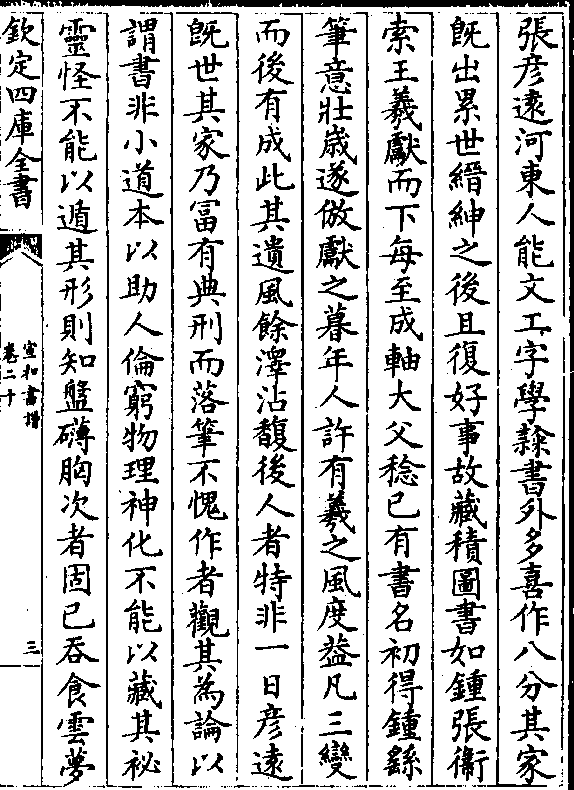 張彦遠河東人能文工字學隸書外多喜作八分其家
旣出累世縉紳之後且復好事故藏積圖書如鍾張衞
索王羲獻而下每至成軸大父稔已有書名初得鍾繇
筆意壯歳遂倣獻之暮年人許有羲之風度葢凡三變
而後有成此其遺風餘澤沾馥後人者特非一日彦遠
旣世其家乃富有典刑而落筆不愧作者觀其為論以
謂書非小道本以助人倫窮物理神化不能以藏其祕
靈怪不能以遁其形則知盤礴胸次者固已吞食雲夢
欽定四庫全書
宣和書譜
卷二十
三